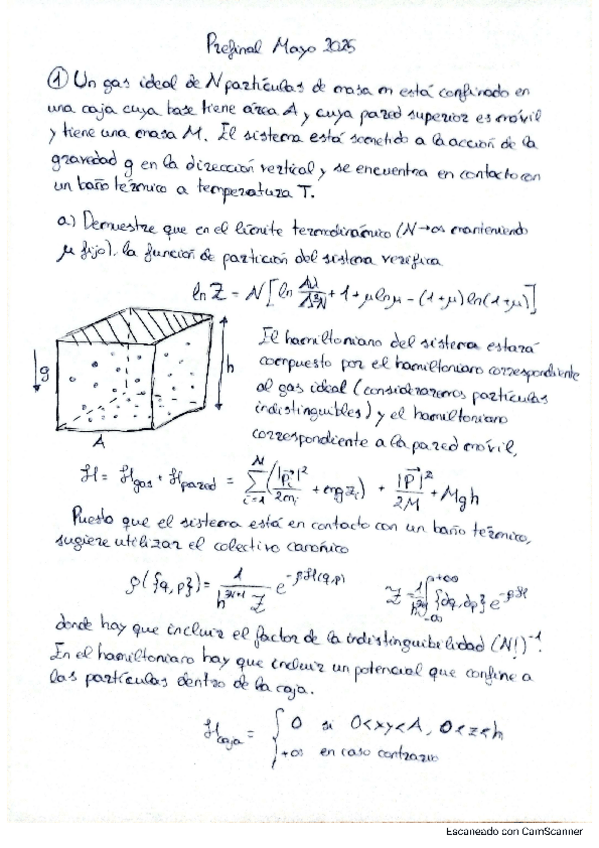 Prefinal Mayo 2025
① Un gas ideal de N partículas de masa m está confinado en
una caja cuya base tiene área A y cuya pared superior es móvil
y tiene una masa M. El sistema está sometido a la acción de la
gravedad g en la dirección vertical y se encuentra en contacto con
un baño térmico a temperatura T.
a) Demuestre que en el límite termodinámico (N→∞ manteniendo
μ fijo), la función de partición del sistema verifica
ln Z = N[ln Aλ/Λ³N + 1 + μ ln μ - (1+μ) ln(1+μ)]
g
h
A
El hamiltoniano del sistema estará
compuesto por el hamiltoniano correspondiente
al gas ideal (consideraremos partículas
indistinguibles) y el hamiltoniano
correspondiente a la pared móvil,
ℋ = ℋgas + ℋpared = Σ_{i=1}^{N} (|p⃗i|²/2mi + mgzi) + |P⃗|²/2M + Mgh
Puesto que el sistema está en contacto con un baño térmico,
sugiere utilizar el colectivo canónico
ρ({q,p}) = 1/(h^{3N+1} Z) e^{-βℋ(q,p)} Z = 1/h^{3N} ∫_{-∞}^{+∞} {dq,dp} e^{-βℋ}
donde hay que incluir el factor de la indistinguibilidad (N!)⁻¹.
En el hamiltoniano hay que incluir un potencial que confine a
las partículas dentro de la caja.
ℋcaja = { 0 si 0<xy<A, 0<z<h
+∞ en caso contrario
Escaneado con CamScanner